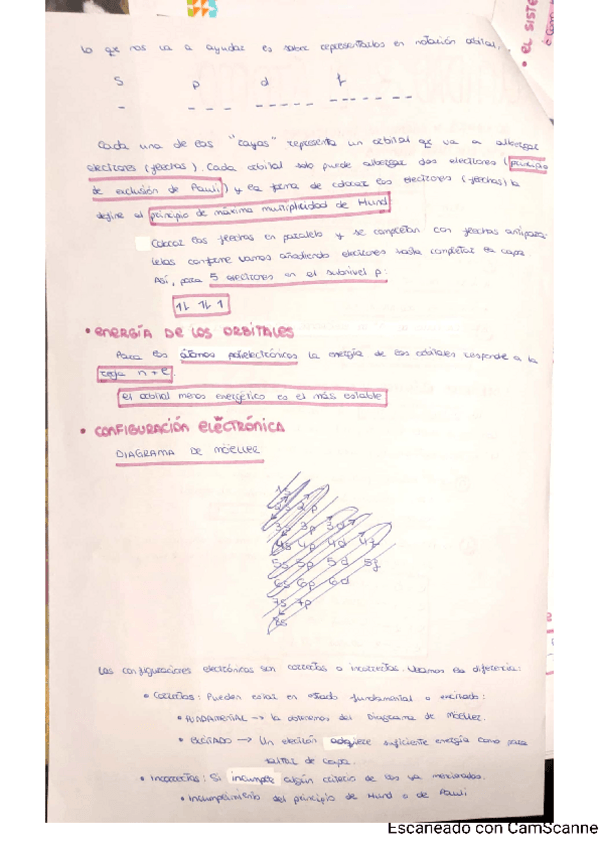 Lo que nos va a ayudar es sobre representarlos en notación orbital.
S p d f
- - - - - - - - - - - - - - - -
Cada una de las "cajas" representa un orbital que va a albergar
electrones (flechas). Cada orbital solo puede albergar dos electrones (principio
de exclusión de Pauli) y la forma de colocar los electrones (flechas) la
define el principio de máxima multiplicidad de Hund
Colocar las flechas en paralelo y se completan con flechas antipara-
lelas conforme vamos añadiendo electrones hasta completar la capa
Así, para 5 electrones en el subnivel p:
1L 1L 1
• ENERGÍA DE LOS ORBITALES
Para los átomos polielectrónicos la energía de los orbitales responde a la
regla n + l.
el orbital menos energético es el más estable
• CONFIGURACIÓN ELECTRÓNICA
DIAGRAMA DE MÖELLER
1s
2s 2p
3s 3p 3d
4s 4p 4d 4f
5s 5p 5d 5f
6s 6p 6d
7s 7p
8s
Las configuraciones electrónicas son correctas o incorrectas. Veamos la diferencia:
• Correctas: Pueden estar en estado fundamental o excitado:
• FUNDAMENTAL → la obtenemos del Diagrama de Möeller.
• EXCITADO → Un electrón adquiere suficiente energía como para
saltar de capa.
• Incorrectas: Si incumple algún criterio de los ya mencionados.
• Incumplimiento del principio de Hund o de Pauli
• EL SISTE
Escaneado con CamScanne